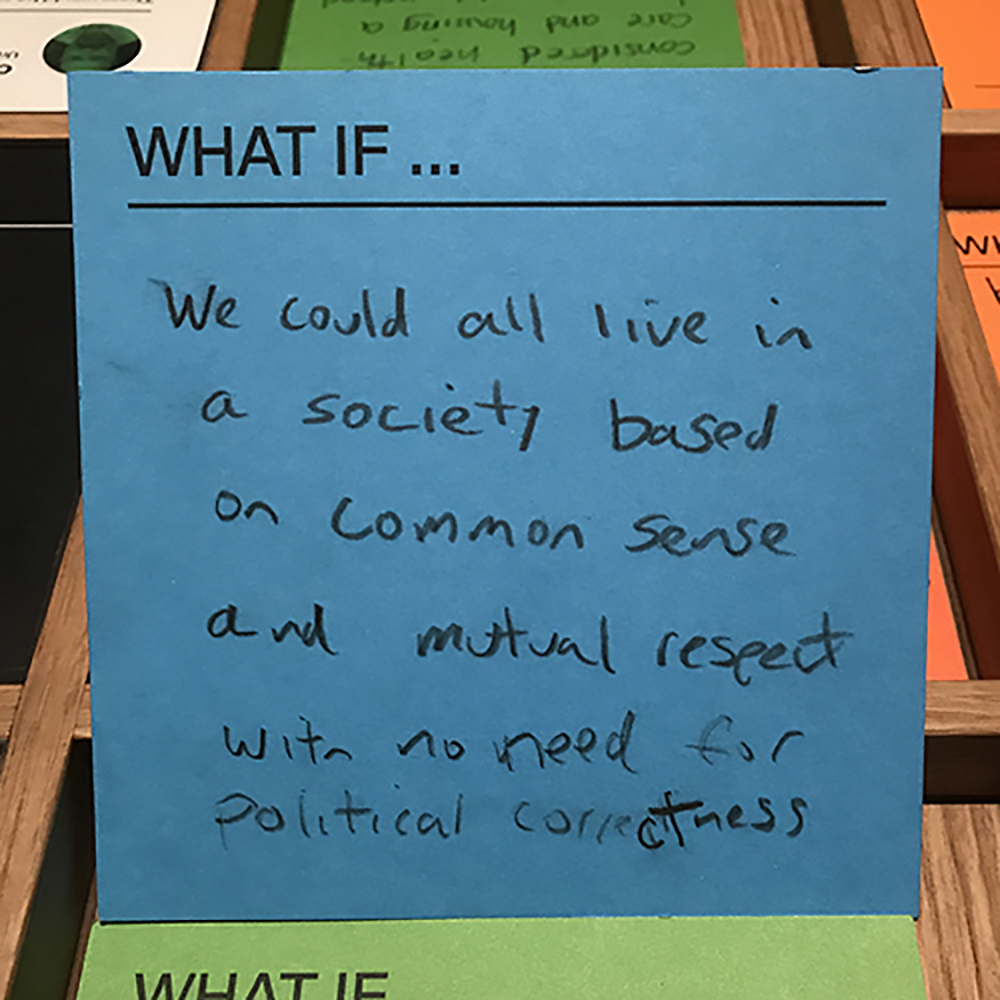 considered health
care and housing a
WHAT IF ...
We could all live in
a society based
on common sense
and mutual respect
with no need for
political correctness
WHAT IF